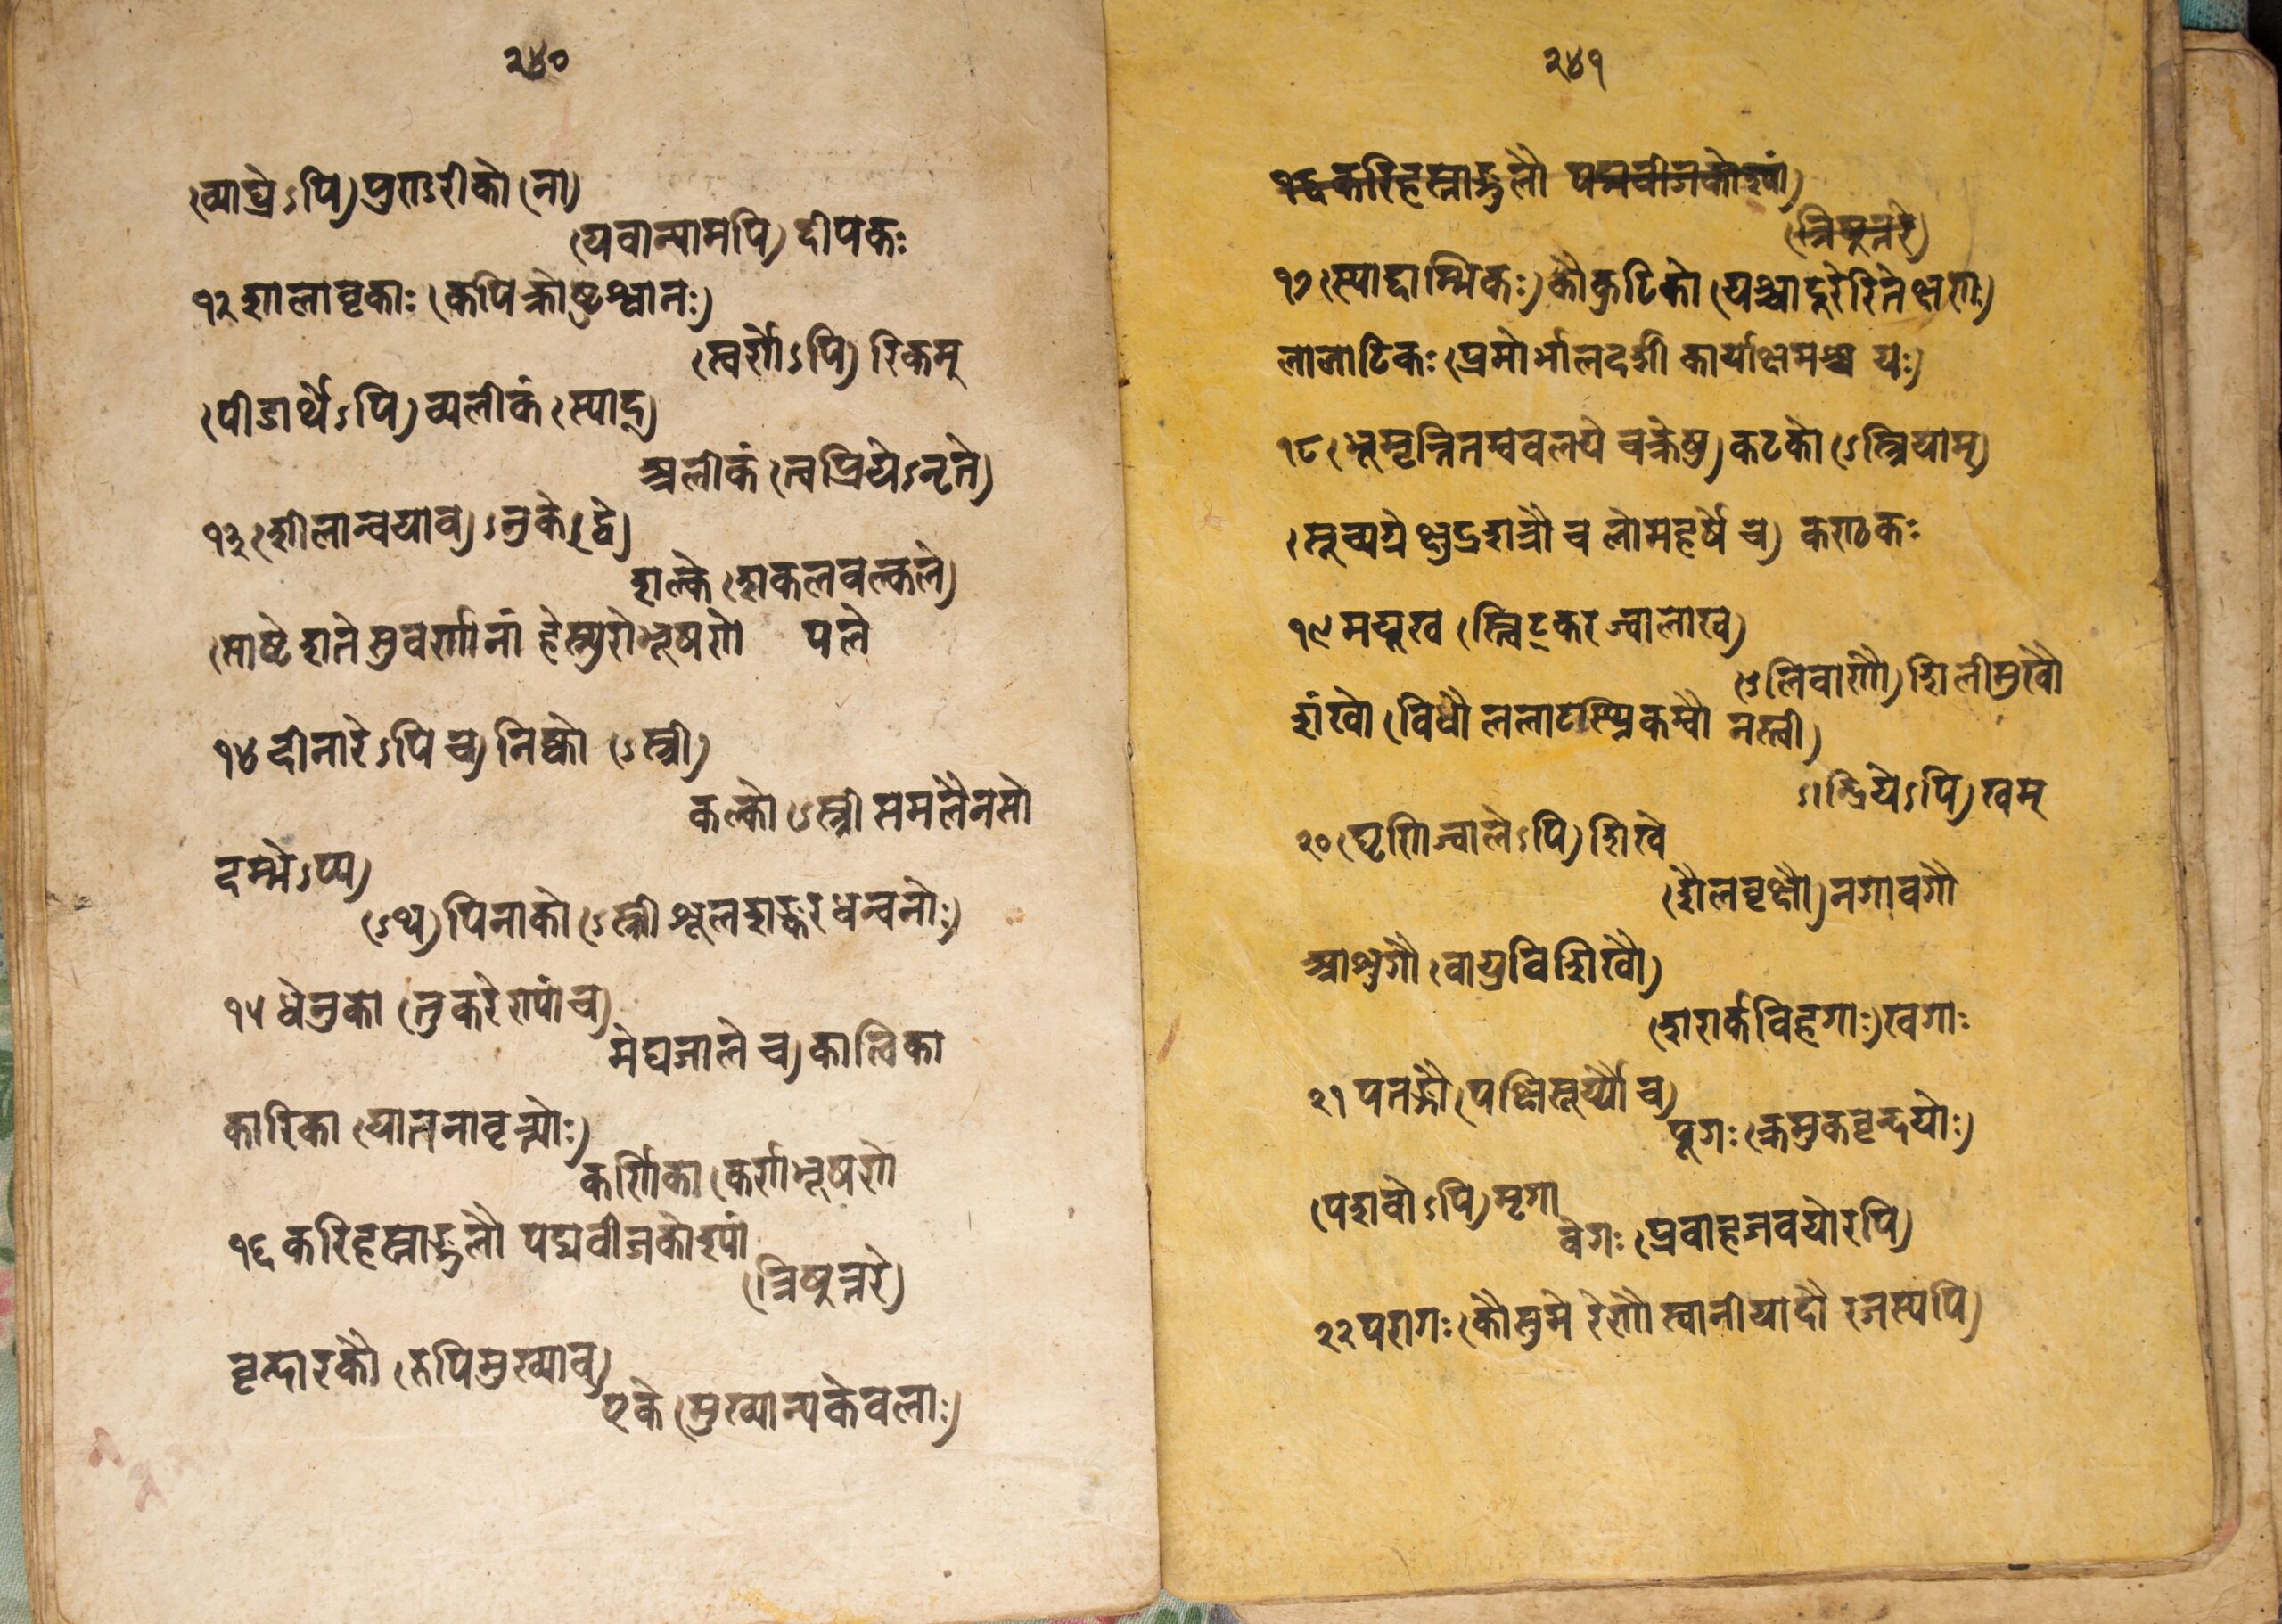 २४०
(व्याघ्रेऽपि) पुण्डरीको (ना)
(यवान्यामपि) दीपकः
१२ शालावृकाः (कपिक्रोष्टुश्वानः)
(स्वर्णेऽपि) रिकम्
(पीडार्थेऽपि) व्यलीकं (स्याद्)
अलीकं (त्वप्रियेऽनृते)
१३ (शीलान्वयाव)ऽनुके (द्वे)
शल्के (शकलवल्कले)
(साष्टे शते सुवर्णानां हेम्न्युरोभूषणे पले
१४ दीनारेऽपि च) निष्को (ऽस्त्री)
कल्को (ऽस्त्री समलैनसो
दम्भेऽप्य)
(ऽथ) पिनाको (ऽस्त्री शूलशङ्करधन्वनोः)
१५ धेनुका (तु करेण्वां च)
मेघजाले च) कालिका
कारिका (यातनावृत्त्योः)
कर्णिका (कर्णभूषणे
१६ करिहस्ताङ्गुलौ पद्मवीजकोश्यां
(त्रिषूत्तरे)
वृन्दारकौ (रूपिमुख्याव्)
एके (मुख्यान्यकेवलाः)
२४१
१६ करिहस्ताङ्गुलौ पद्मवीजकोश्यां)
(त्रिषूत्तरे)
१७ (स्याद्दाम्भिकः) कौक्कुटिको (यश्चादूरेरितेक्षणः)
लालाटिकः (प्रभोर्भालदर्शी कार्याक्षमश्च यः)
१८ (भूभृन्नितम्बवलयचक्रेषु) कटको (ऽस्त्रियाम्)
(सूच्यग्रे क्षुद्रशत्रौ च लोमहर्षे च) कण्टकः
१९ मयूख (स्त्विट्करज्वालास्व)
(ऽलिबाणौ) शिलीमुखौ
शंखो (निधौ ललाटास्थ्निकम्बौ नस्त्री)
(इन्द्रियेऽपि) खम्
२० (घृणिज्वालेऽपि) शिखे
(शैलवृक्षौ) नगावगौ
आशुगौ (वायुविशिखौ)
(शरार्कविहगाः) खगाः
२१ पतङ्गौ (पक्षिसूर्य्यौ च)
पूगः (क्रमुकवृन्दयोः)
(पशवोऽपि) मृगा
वेगः (प्रवाहजवयोरपि)
२२ परागः (कौसुमे रेणौ स्नानीयादौ रजस्यपि)